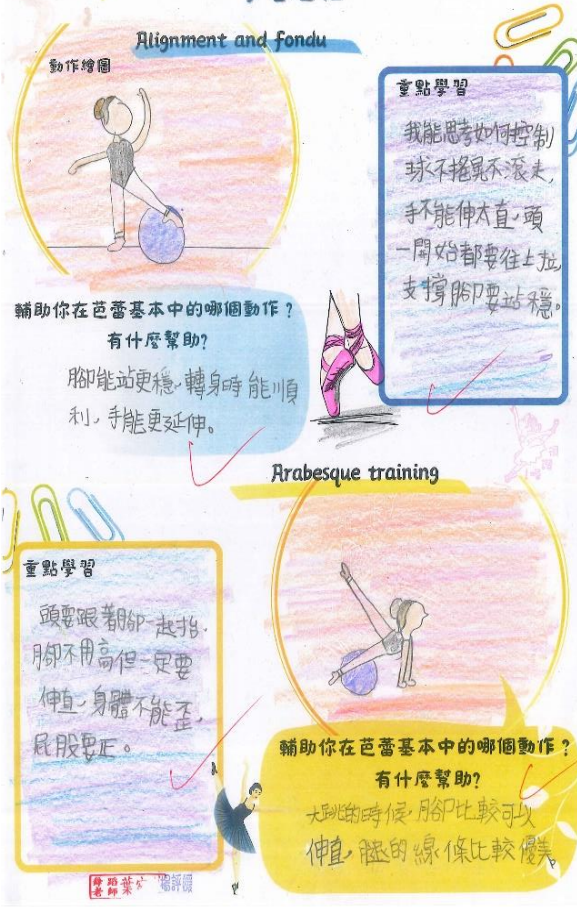 Alignment and fondu
動作繪圖
重點學習
我能思考如何控制
球不搖晃不滾走,
手不能伸太直,頭
一開始都要往上拉,
支撐腳要站穩。
輔助你在芭蕾基本中的哪個動作?
有什麼幫助?
腳能站更穩,轉身時能順
利,手能更延伸。
Arabesque training
重點學習
頭要跟著腳一起抬,
腳不用高但一定要
伸直,身體不能歪,
屁股要正。
輔助你在芭蕾基本中的哪個動作?
有什麼幫助?
大跳的時候,腳比較可以
伸直,腿的線條比較優美